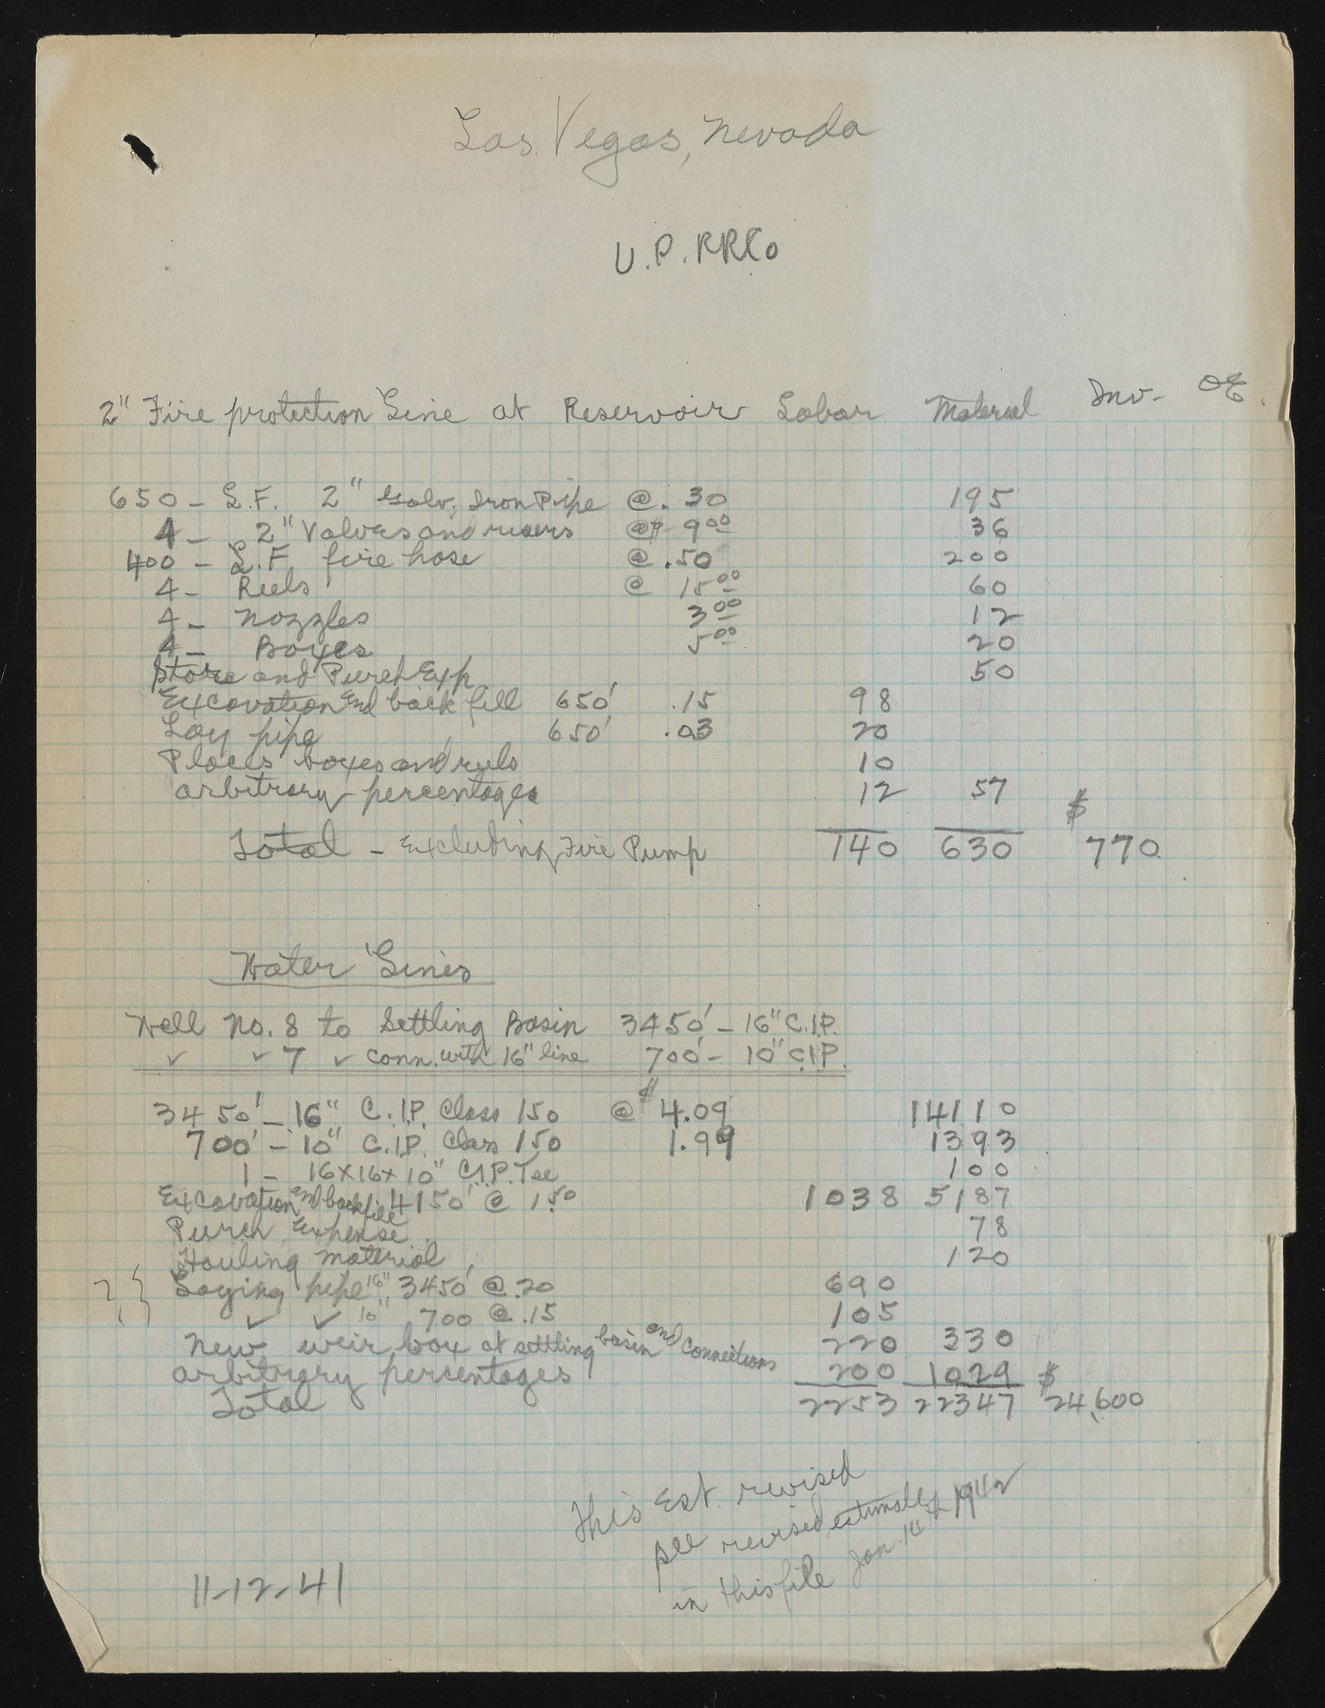 Las Vegas, Nevada
U.P.RRCo
2" Fire protection Line at Reservoir Labor Material Inv- OE.
650 - L.F. 2" Galv. Iron Pipe @ .30 195
4 - 2" Valves and risers @ $ 9 00 36
400 - L.F. fire hose @ .50 200
4 - Reels @ 15 00 60
4 - Nozzles 3 00 12
4 - Boxes 5 00 20
Store and Purch Exp 50
Excavation and back fill 650' .15 98
Lay pipe 650' .03 20
Places boxes and reels 10
arbitrary percentages 12 57
Total - Excluding Fire Pump 140 630 $ 770
Water Lines
Well No. 8 to Settling Basin 3450' - 16" C.I.P.
✓ ✓ 7 ✓ conn. with 16" line 700' - 10" C.I.P.
3450' - 16" C.I.P. Class 150 @ $ 4.09 14110
700' - 10" C.I.P. Class 150 1.99 1393
1 - 16x16x10" C.I.P. Tee 100
Excavation and backfill 4150' @ 1.50 1038 5187
Purch Expense 78
Hauling material 120
?, { Laying pipe 16" 3450' @ .20 690
✓ ✓ 10" 700 @ .15 105
New weir box at settling basin and connections 220 330
arbitrary percentages 200 1029
Total 2253 22347 $ 24,600
This Est. revised
see revised estimate
in this file Jan 14th 1942
11-12-41